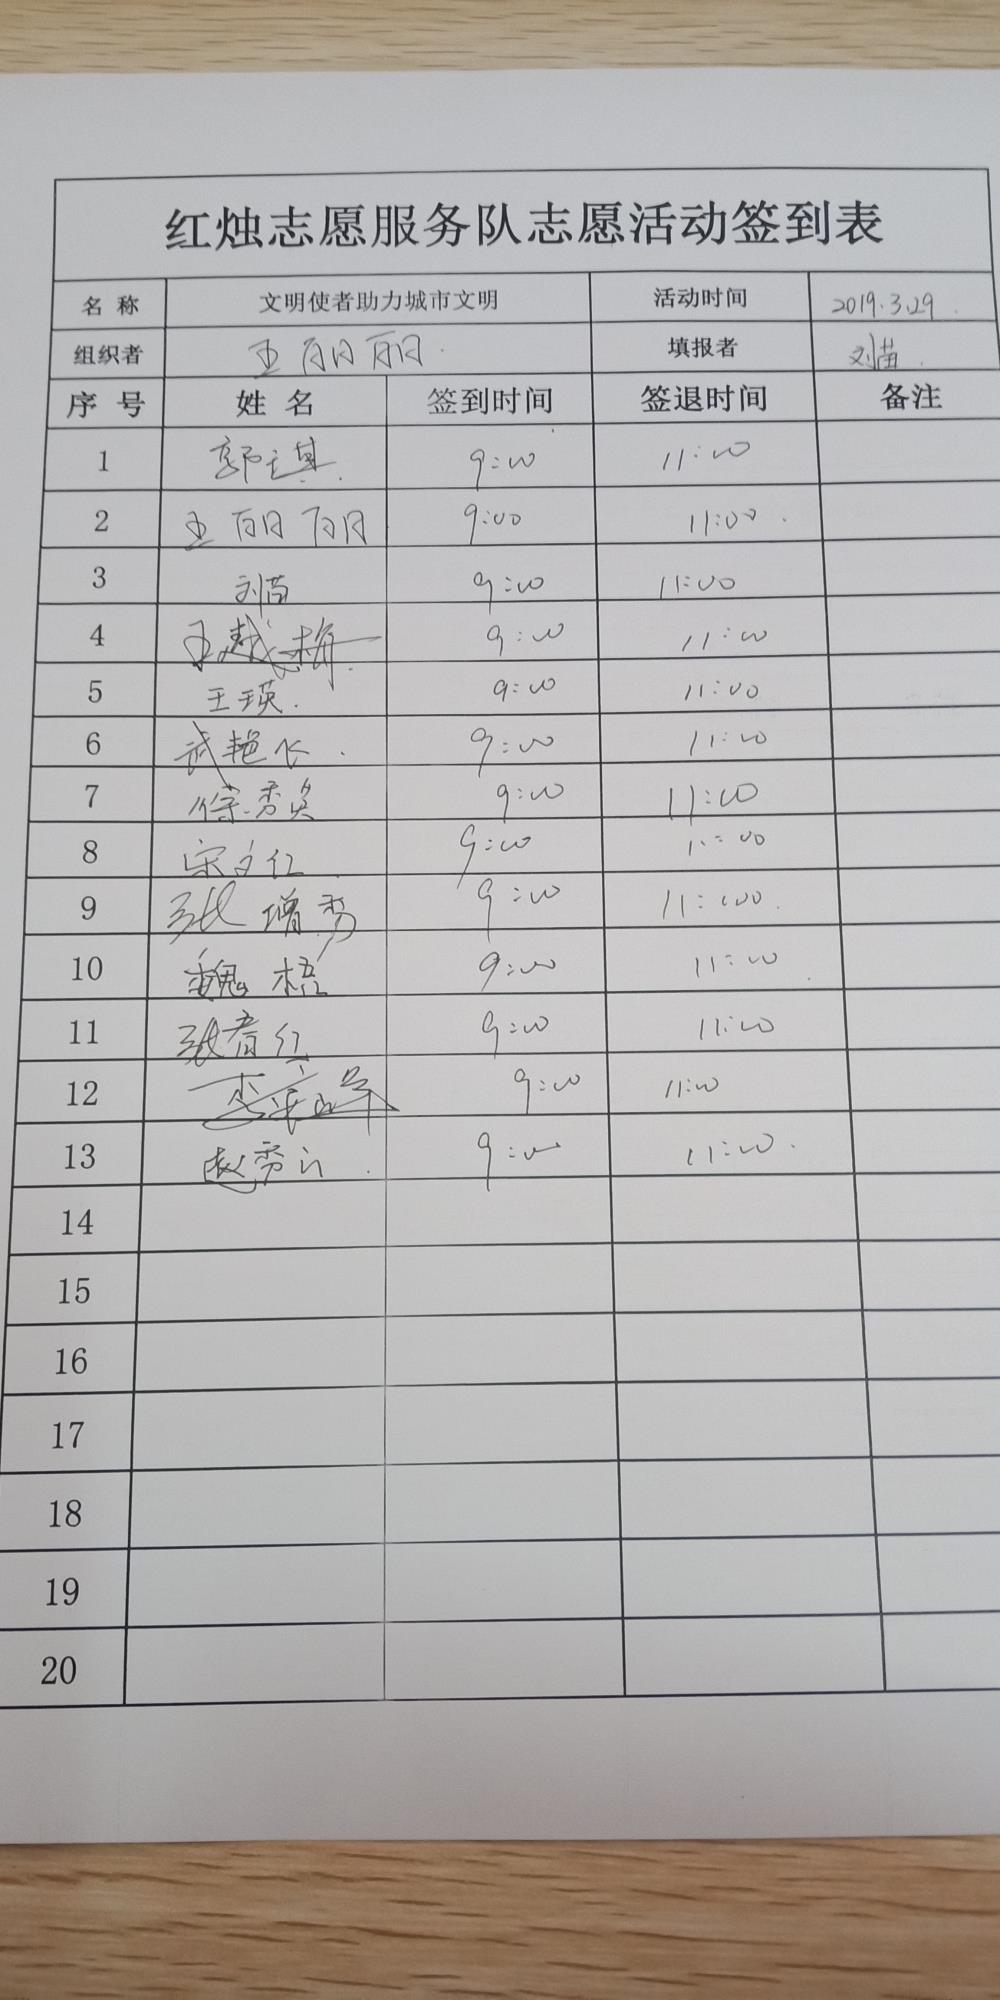 红烛志愿服务队志愿活动签到表
名 称 文明使者助力城市文明 活动时间 2019.3.29.
组织者 王丽丽 填报者 刘苗
序 号 姓 名 签到时间 签退时间 备注
1 9:00 11:00
2 王丽丽 9:00 11:00
3 刘苗 9:00 11:00
4 9:00 11:00
5 王瑛 9:00 11:00
6 武艳 9:00 11:00
7 徐秀 9:00 11:00
8 宋文红 9:00 11:00
9 张增秀 9:00 11:00
10 魏梧 9:00 11:00
11 张春红 9:00 11:00
12 李 9:00 11:00
13 赵秀 9:00 11:00
14
15
16
17
18
19
20